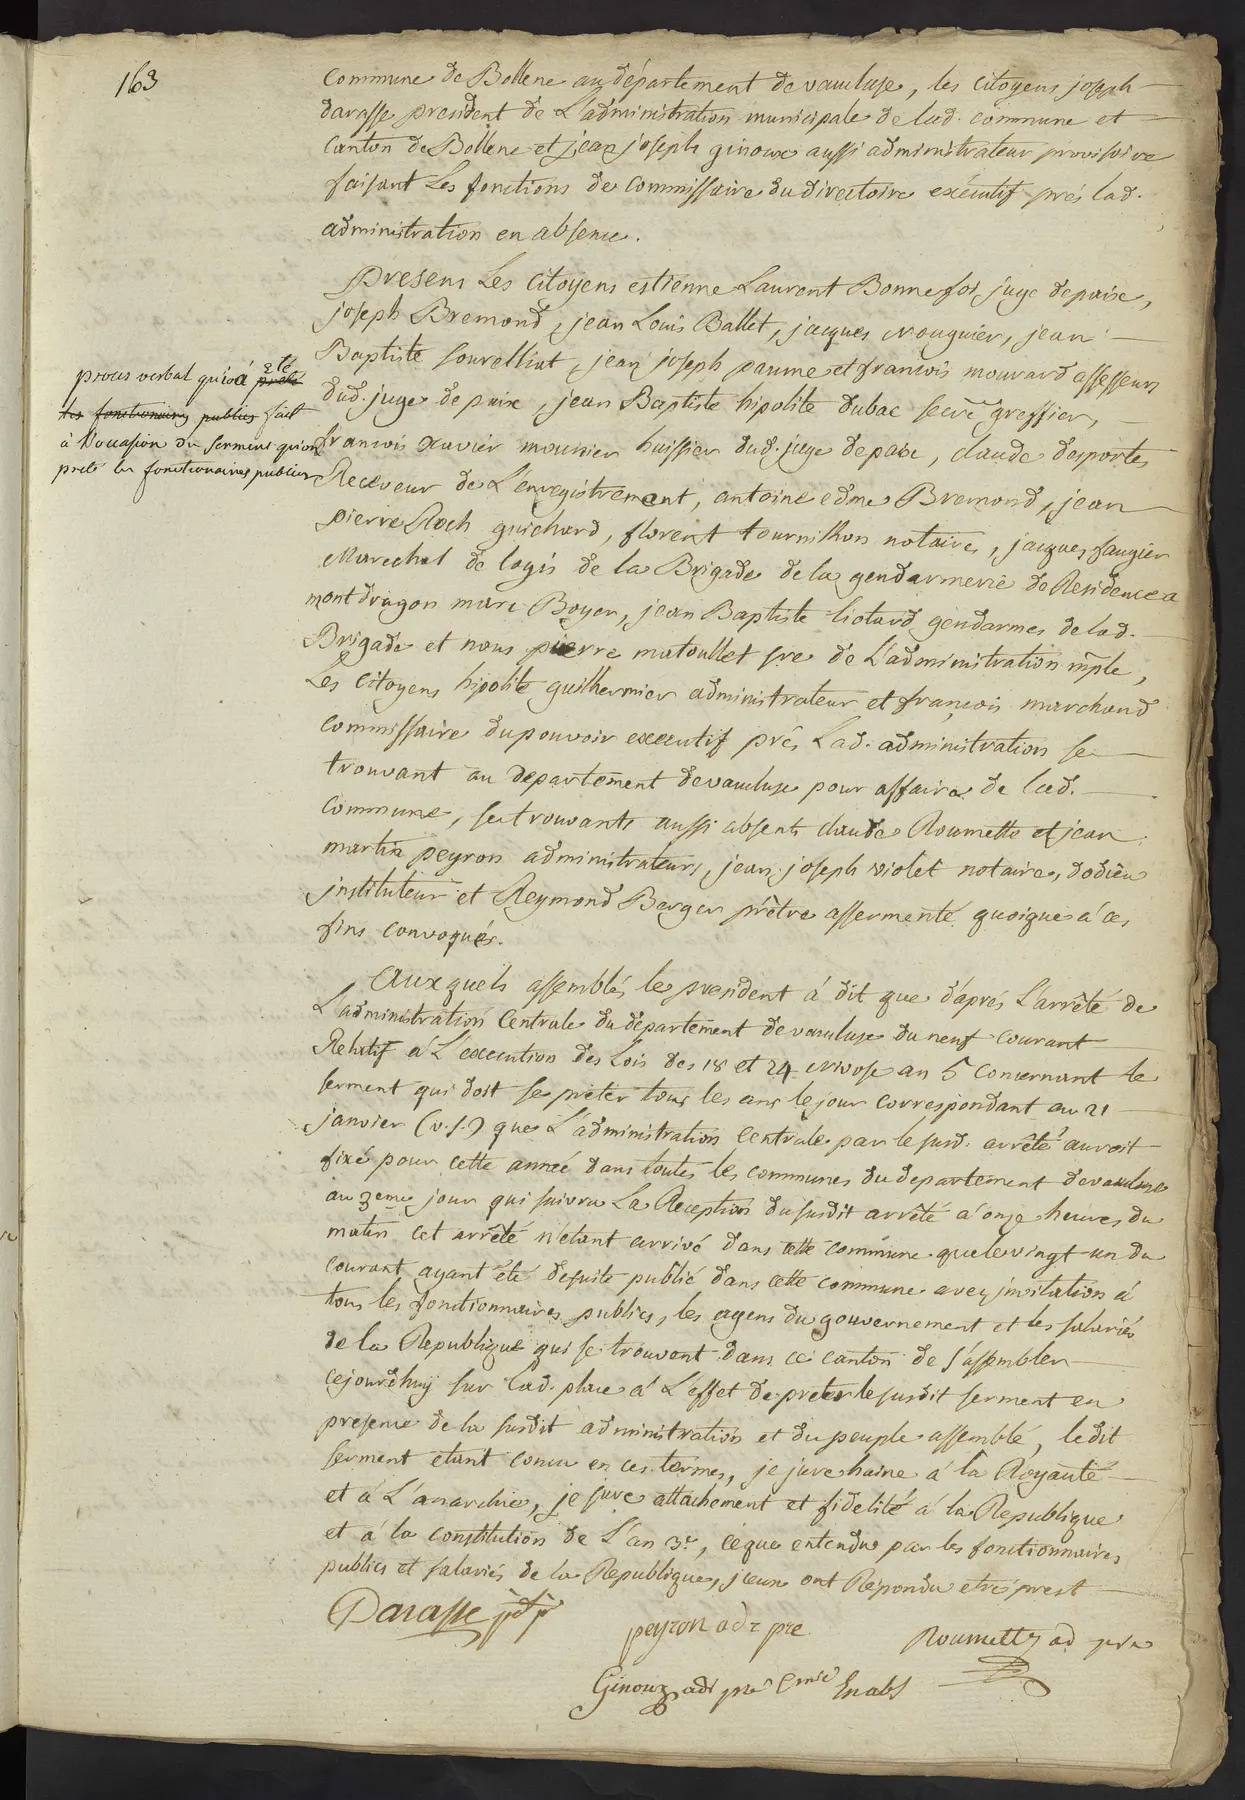 163
Commune de Bollene au département de vaucluse, les Citoyens joseph
darasse president de L'administration municipale de lad. commune et
Canton de Bollene et jean joseph ginoux aussi administrateur provisoire
faisant Les fonctions de Commissaire du directoire exécutif prés lad.
administration en absence.
Presens Les Citoyens estienne Laurent Bonnefoi juge de paix,
joseph Bremond, jean Louis Ballet, jacques Nouguier, jean
Baptiste jean joseph paume et francois mouvard assesseurs
dud. juge de paix, jean Baptiste hipolite dubac secre greffier,
francois xavier mounier huissier dud. juge de paix, claude desportes
Receveur de L'enregistrement, antoine edme Bremond, jean
pierre Roch guichard, florent tournillon notaires, jacques faugier
Marechal de logis de la Brigade de la gendarmerie de Residence a
montdragon marc Boyer, jean Baptiste liotard gendarmes de lad.
Brigade et nous pierre matoullet sre de L'administration mple,
Les Citoyens hipolite guilhermier administrateur et françois marchand
Commissaire du pouvoir executif prés Lad. administration se
trouvant au departement de vaucluse pour affaire de lad.
Commune, se trouvants aussi absents claude Roumette et jean
martin peyron administrateurs, jean joseph violet notaire, dodieu
jnstituteur et Reymond Berger prêtre assermenté quoique á ces
fins convoqués.
procés verbal qui a été prété
les fonctionaires publics fait
á l'occasion du serment qu'ont
preté les fonctionaires publics
Auxquels assemblés le president á dit que d'aprés L'arrêté de
L'administration Centrale du département de vaucluse du neuf courant
Relatif á L'execution des Lois des 18 et 24 Nivose an 5 Concernant le
serment qui doit se préter tous les ans le jour correspondant au 21
janvier (v. s.) que L'administration Centrale par le susd. arrêté auroit
fixé pour cette année dans toutes les communes du departement de vaucluse
au 3eme jour qui suivra La Reception du susdit arrêté á onze heures du
matin cet arrêté n'étant arrivé dans cette commune que le vingt un du
courant ayant été desuite publié dans cette commune avec jnvitation á
tous les fonctionnaires publics, les agens du gouvernement et les salariés
de la Republique qui se trouvent dans ce canton de s'assembler
cejourdhuy sur lad. place á L'effet de preter le susdit serment en
presence de la susdit administration et du peuple assemblé, ledit
serment etant concu en ces termes, je jure haine á la Royauté
et á L'anarchie, je jure attachement et fidelité á la Republique
et á la constitution de L'an 3e, ce que entendu par les fonctionnaires
publics et salariés de la Republique, jceux ont Repondu etre prest
Darasse pdt
peyron adr pre
Roumette ad pre
Ginoux adr pre Cmre En abs